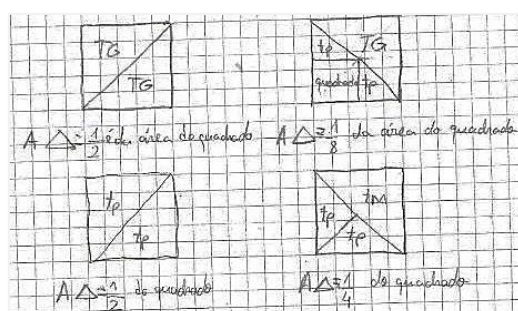 TG
TG
tp TG
quadrado tp
A △ = 1/2 é da área do quadrado
A △ = 1/8 da área do quadrado
tp
tp
tM
tp
tp
A △ = 1/2 do quadrado
A △ = 1/4 do quadrado